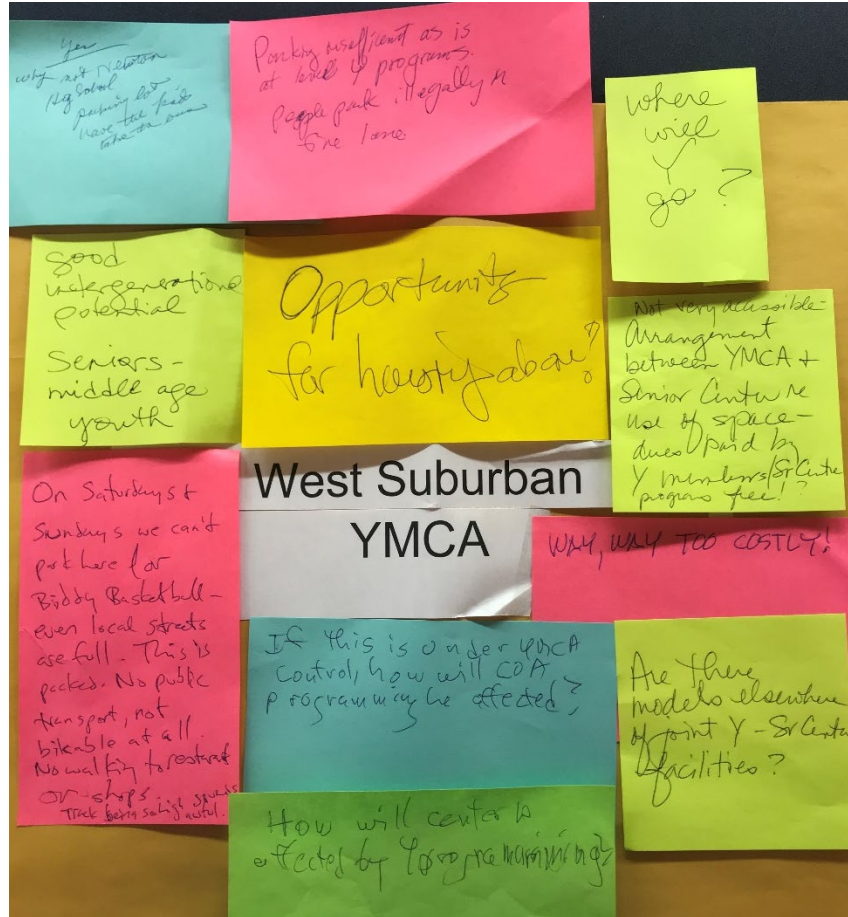 Yes
why not Newton
Hg School
parking lot
have the kids
take the bus
Parking insufficient as is
at level Y programs.
people park illegally in
fire lane
where
will
Y
go?
Good
intergenerational
potential
Seniors-
middle age
youth
Opportunity
for housing above?
Not very accessible-
Arrangement
between YMCA +
Senior Center re
use of space-
dues paid by
Y members/Sr Center
programs free!?
West Suburban
YMCA
On Saturdays +
Sundays we can't
park here for
Biddy Basketball-
even local streets
are full. This is
packed. No public
transport, not
bikable at all.
No walking to restaurant
or shops.
Track being so high sounds awful.
WAY, WAY TOO COSTLY!
If this is under YMCA
Control, how will COA
programming be affected?
Are there
models elsewhere
of joint Y-Sr Center
facilities?
How will center be
effected by Y programming?